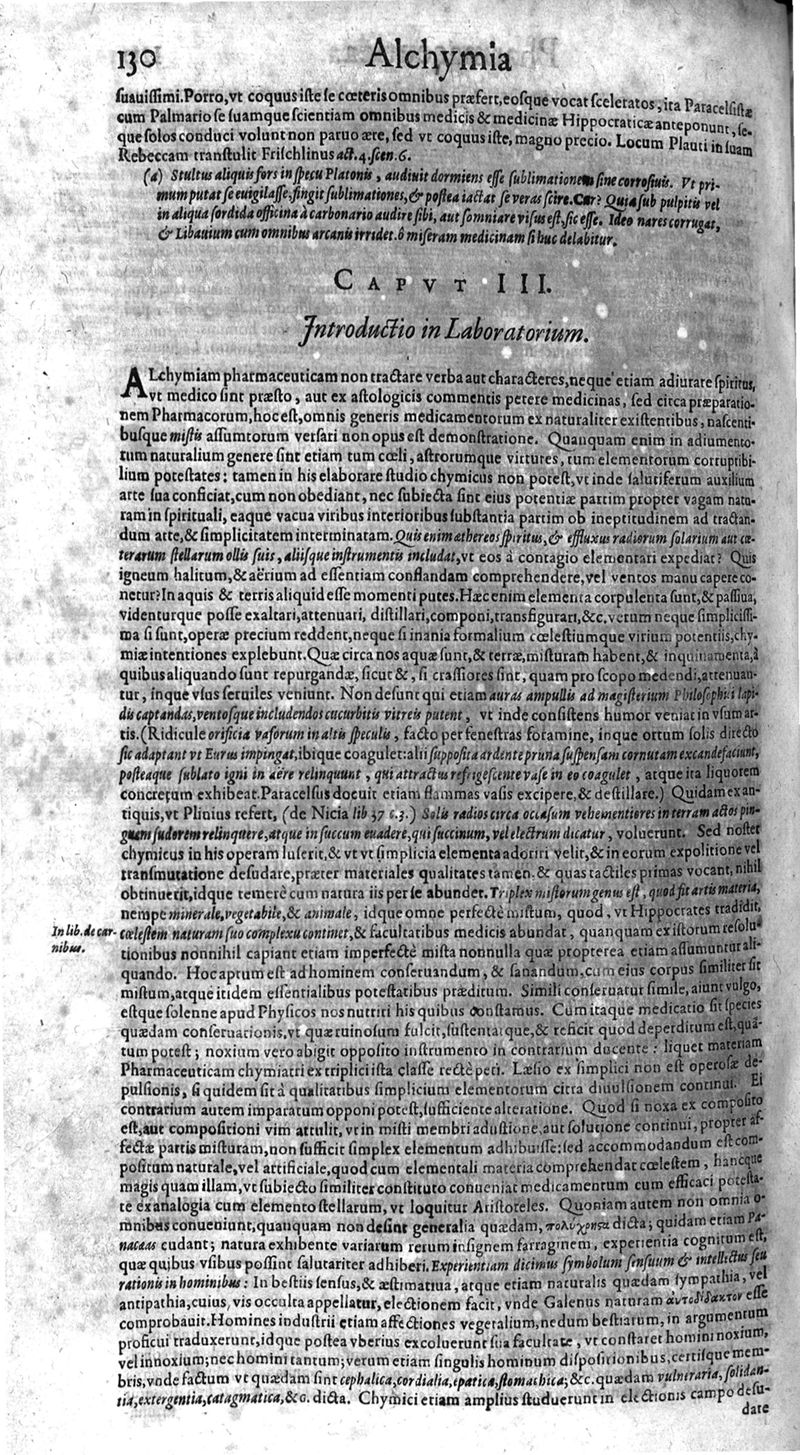 130 Alchymia
ſuauiſſimi.Porro,vt coquus iſte ſe cœteris omnibus præfert,eoſque vocat ſceleratos, ita Paracelſiſtæ
cum Palmario ſe ſuamque ſcientiam omnibus medicis & medicinæ Hippocraticæ anteponunt, ſe-
que ſolos conduci volunt non paruo ære, ſed vt coquus iſte, magno precio. Locum Plauti in ſuam
Rebeccam tranſtulit Friſchlinus act. 4. ſcen. 6.
(a) Stultus aliquis fors in ſpecu Platonis, audiuit dormiens eſſe ſublimationem ſine corroſiuis. Vt pri-
mum putat ſe euigilaſſe, fingit ſublimationes, & poſtea iactat ſe veras ſcire. Cur? Quia ſub pulpitis vel
in aliqua ſordida officina à carbonario audire ſibi, aut ſomniare viſus eſt, ſic eſſe. Ideo nares corrugat,
& Libauium cum omnibus arcanis irridet. ô miſeram medicinam ſi huc delabitur.
CAPVT III.
Introductio in Laboratorium.
ALchymiam pharmaceuticam non tractare verba aut characteres, neque etiam adiurare ſpiritus,
vt medico ſint præſto, aut ex aſtologicis commentis petere medicinas, ſed circa præparatio-
nem Pharmacorum, hoc eſt, omnis generis medicamentorum ex naturaliter exiſtentibus, naſcenti-
buſque miſtis aſſumtorum verſari non opus eſt demonſtratione. Quanquam enim in adiumento-
tum naturalium genere ſint etiam tum cœli, aſtrorumque virtutes, tum elementorum corruptibi-
lium poteſtates: tamen in his elaborare ſtudio chymicus non poteſt, vt inde ſalutiferum auxilium
arte ſua conficiat, cum non obediant, nec ſubiecta ſint eius potentiæ partim propter vagam natu-
ram in ſpirituali, eaque vacua viribus interioribus ſubſtantia partim ob ineptitudinem ad tractan-
dum arte, & ſimplicitatem interminatam. Quis enim æthereos ſpiritus, & effluxus radiorum ſolarium aut cæ-
terarum ſtellarum ollis ſuis, aliiſque inſtrumentis includat, vt eos à contagio elementari expediat? Quis
igneum halitum, & aërium ad eſſentiam conflandam comprehendere, vel ventos manu capere co-
netur? In aquis & terris aliquid eſſe momenti putes. Hæc enim elementa corpulenta ſunt, & paſſiua,
videnturque poſſe exaltari, attenuari, diſtillari, componi, transfigurari, &c. verum neque ſimpliciſſi-
ma ſi ſunt, operæ precium reddent, neque ſi inania formalium cœleſtiumque virium potentiis, chy-
miæ intentiones explebunt. Quæ circa nos aquæ ſunt, & terræ, miſturam habent, & inquinamenta, à
quibus aliquando ſunt repurgandæ, ſicut &, ſi craſſiores ſint, quam pro ſcopo medendi, attenuan-
tur, inque vſus ſeruiles veniunt. Non deſunt qui etiam auras ampullis ad magiſterium Philoſophici lapi-
dis captandas, ventoſque includendos cucurbitis vitreis putent, vt inde conſiſtens humor veniat in vſum ar-
tis. (Ridicule orificia vaſorum in altis ſpeculis, facto per feneſtras foramine, inque ortum ſolis directo
ſic adaptant vt Eurus impingat, ibique coagulet: alii ſuppoſita ardente pruna ſuſpenſam cornutam excandefaciunt,
poſteaque ſublato igni in aëre relinquunt, qui attractus refrigeſcente vaſe in eo coagulet, atque ita liquorem
concretum exhibeat. Paracelſus docuit etiam flammas vaſis excipere, & deſtillare.) Quidam ex an-
tiquis, vt Plinius refert, (de Nicia lib 37 c.3.) Solis radios circa occaſum vehementiores in terram actos pin-
guem ſudorem relinquere, atque in ſuccum euadere, qui ſuccinum, vel electrum dicatur, voluerunt. Sed noſter
chymicus in his operam luſerit, & vt vt ſimplicia elementa adoriri velit, & in eorum expolitione vel
tranſmutatione deſudare, præter materiales qualitates tamen, & quas tactiles primas vocant, nihil
obtinuerit, idque temerè cum natura iis per ſe abundet. Triplex miſtorum genus eſt, quod fit artis materia,
nempe minerale, vegetabile, & animale, idque omne perfectè miſtum, quod, vt Hippocrates tradidit,
In lib. de car-
nibus.
cœleſtem naturam ſuo complexu continet, & facultatibus medicis abundat, quanquam ex iſtorum reſolu-
tionibus nonnihil capiant etiam imperfectè miſta nonnulla quæ propterea etiam aſſumuntur ali-
quando. Hoc aptum eſt ad hominem conſeruandum, & ſanandum, cum eius corpus ſimiliter ſit
miſtum, atque itidem eſſentialibus poteſtatibus præditum. Simili conſeruatur ſimile, aiunt vulgo,
eſtque ſolenne apud Phyſicos nos nutriri his quibus conſtamus. Cum itaque medicatio ſit ſpecies
quædam conſeruationis, vt quæ ruinoſum fulcit, ſuſtentatque, & reficit quod deperditum eſt, quā-
tum poteſt; noxium vero abigit oppoſito inſtrumento in contrarium ducente: liquet materiam
Pharmaceuticam chymiatri ex triplici iſta claſſe rectè peti. Læſio ex ſimplici non eſt operoſæ de-
pulſionis, ſi quidem ſit à qualitatibus ſimplicium elementorum citra diuulſionem continui. Ei
contrarium autem imparatum opponi poteſt, ſufficiente alteratione. Quod ſi noxa ex compoſito
eſt, aut compoſitioni vim attulit, vt in miſti membri aduſtione, aut ſolutione continui, propter af-
fectæ partis miſturam, non ſufficit ſimplex elementum adhibuiſſe: ſed accommodandum eſt com-
poſitum naturale, vel artificiale, quod cum elementali materia comprehendat cœleſtem, hancque
magis quam illam, vt ſubiecto ſimiliter conſtituto conueniat medicamentum cum efficaci poteſta-
te ex analogia cum elemento ſtellarum, vt loquitur Ariſtoteles. Quoniam autem non omnia o-
mnibus conueniunt, quanquam non deſint generalia quædam, πολύχρηστα dicta; quidam etiam Pa-
nacæas cudant; natura exhibente variarum rerum inſignem farraginem, experientia cognitum eſt,
quæ quibus vſibus poſſint ſalutariter adhiberi. Experientiam dicimus ſymbolum ſenſuum & intellectus ſeu
rationis in hominibus: In beſtiis ſenſus, & æſtimatiua, atque etiam naturalis quædam ſympathia, vel
antipathia, cuius, vis occulta appellatur, electionem facit, vnde Galenus naturam αὐτοδίδακτον eſſe
comprobauit. Homines induſtrii etiam affectiones vegetalium, nedum beſtiarum, in argumentum
proficui traduxerunt, idque poſtea vberius excoluerunt ſua facultate, vt conſtaret homini noxium,
vel innoxium; nec homini tantum; verum etiam ſingulis hominum diſpoſitionibus, certiſque mem-
bris, vnde factum vt quædam ſint cephalica, cordialia, epatica, ſtomachica; &c. quædam vulneraria, ſolidan-
tia, extergentia, catagmatica, &c. dicta. Chymici etiam amplius ſtuduerunt in electionis campo deſu-
date